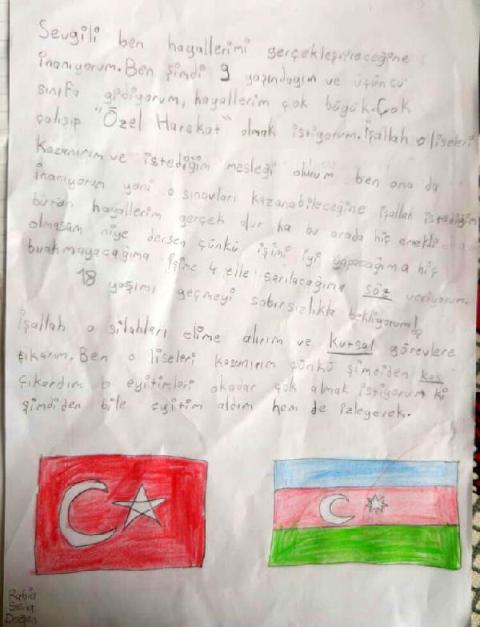 Sevgili ben hayallerimi gerçekleştireceğine
inanıyorum. Ben şimdi 9 yaşındayım ve üçüncü
sınıfa gidiyorum, hayallerim çok büyük. Çok
çalışıp "Özel Harekat" olmak istiyorum. İşallah o liseleri
kazanırım ve istediğim mesleği olurum ben ona da
inanıyorum yani o sınavları kazanabileceğine işallah istediğim
bütün hayallerim gerçek olur ha bu arada hiç emekli
olmasam niye dersen çünkü işimi iyi yapacağıma hiç
bırakmayacağıma işine 4 elle sarılacağıma söz veriyorum.
18 yaşımı geçmeyi sabırsızlıkla bekliyorum!
İşallah o silahları elime alırım ve kutsal görevlere
çıkarım. Ben o liseleri kazanırım çünkü şimdiden kas
çıkardım o eyitimleri okadar çok almak istiyorum ki
şimdiden bile eyitim aldım hem de izleyerek.
Rabia
Sena
Doğan